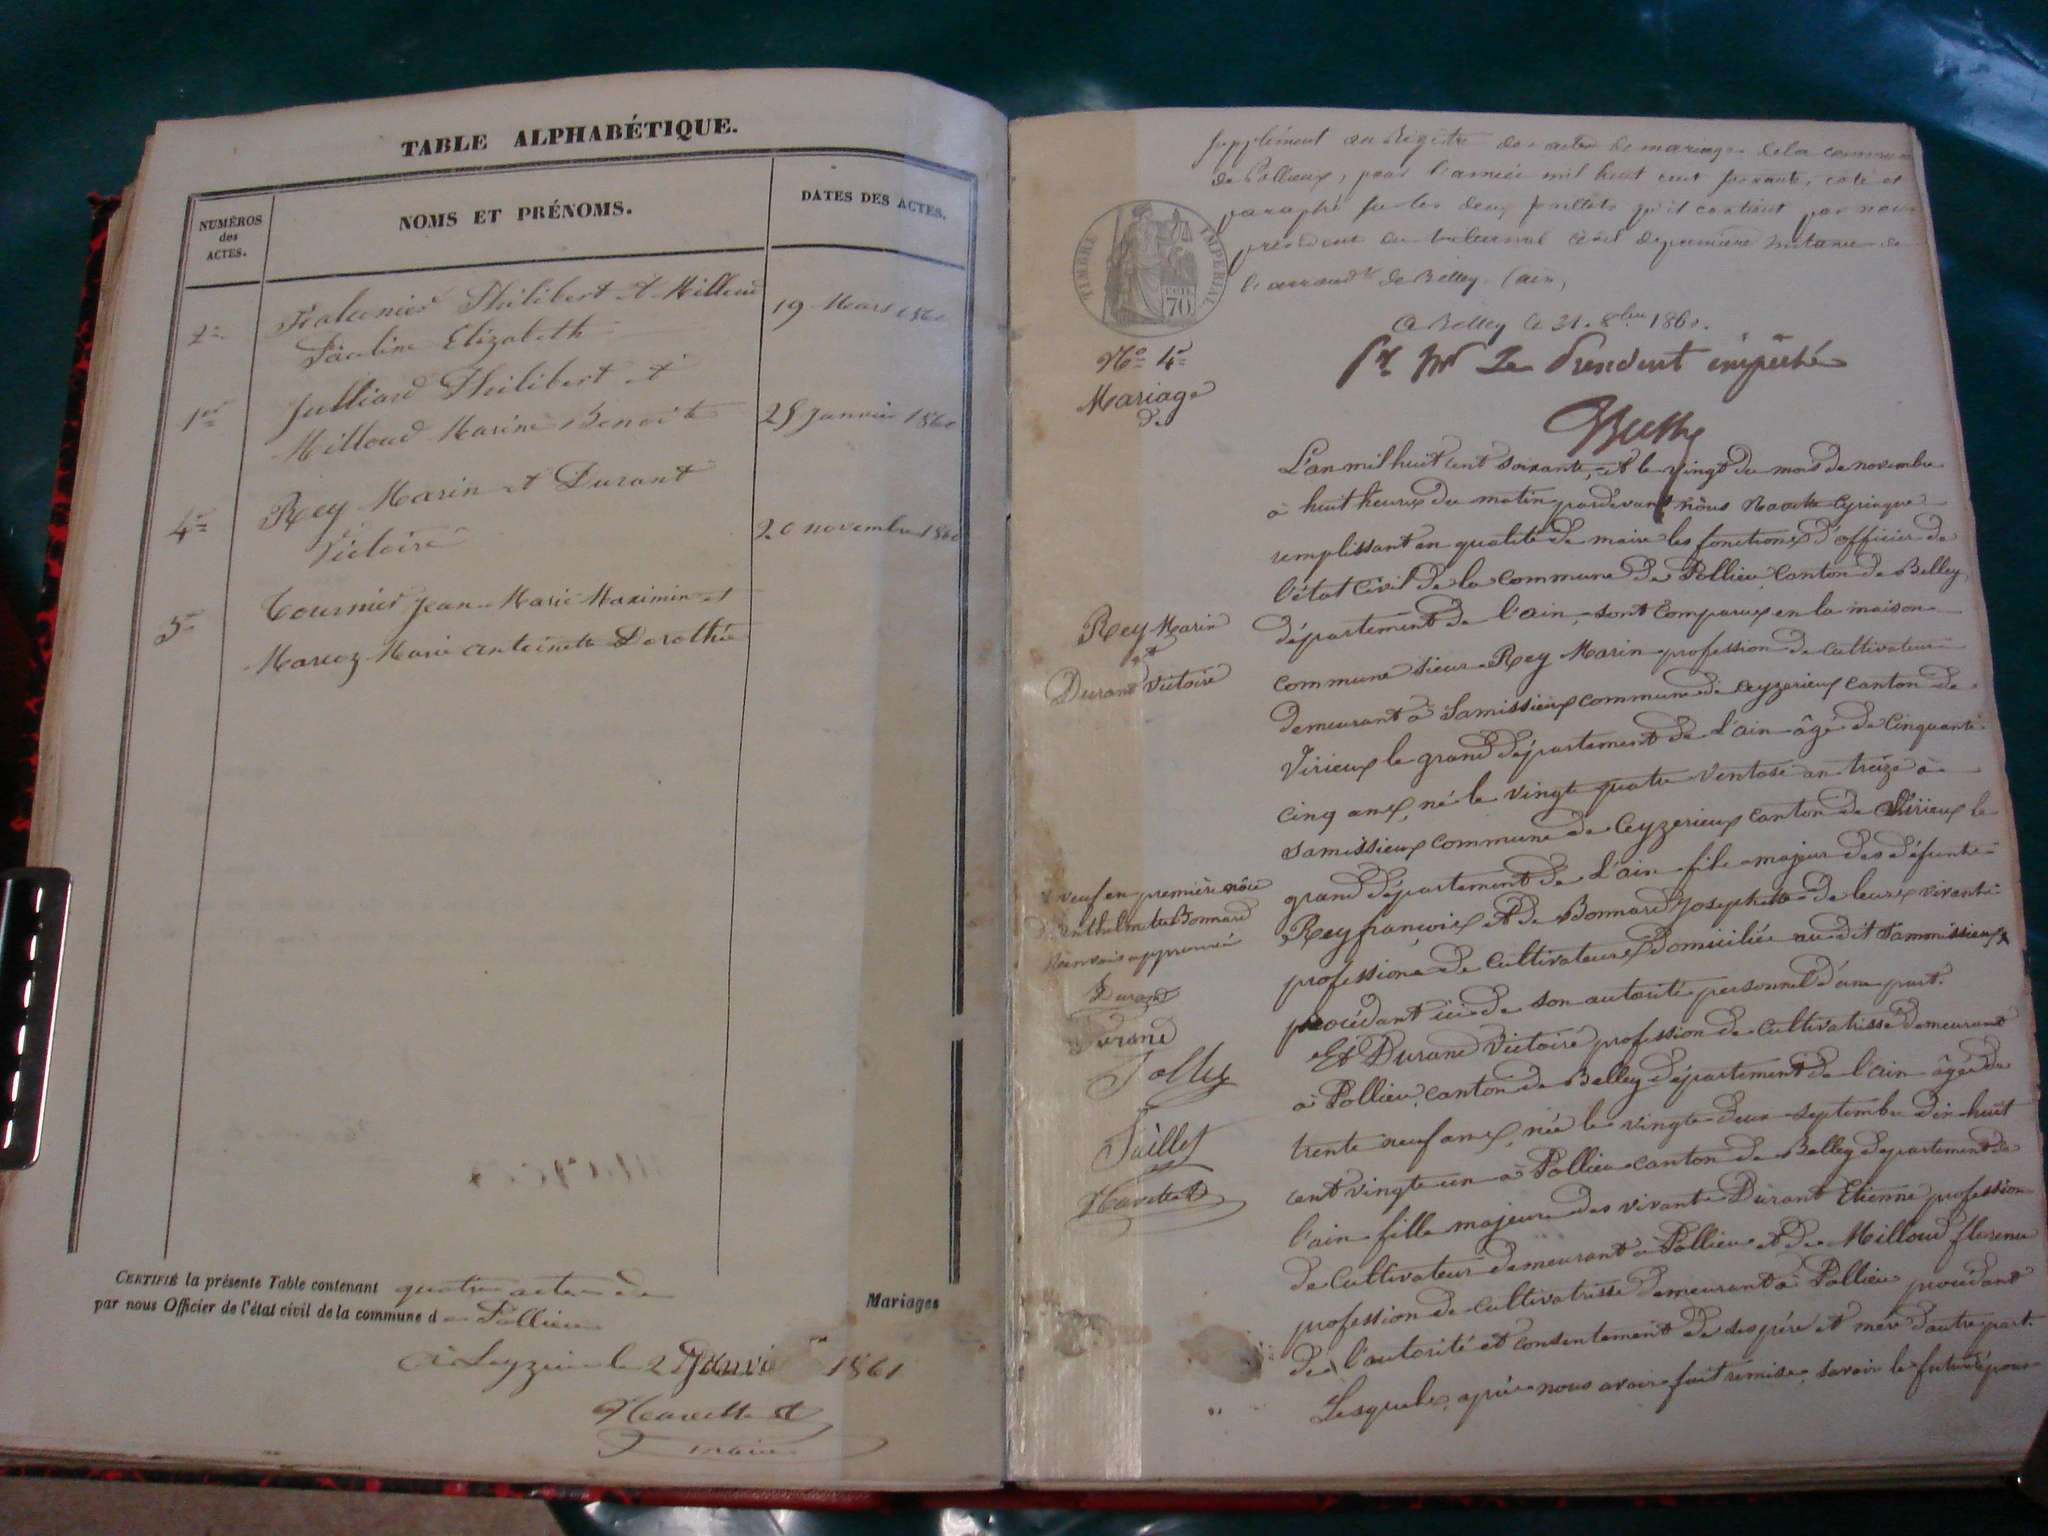 TABLE ALPHABÉTIQUE.
NUMÉROS
des
ACTES.
NOMS ET PRÉNOMS.
DATES DES ACTES.
2e
Philibert et Milloud
Pauline Elizabeth
19 Mars 1860
1er
Julliard Philibert et
Milloud Marine Benoite
25 Janvier 1860
4e
Rey Marin et Durant
Victoire
20 novembre 1860
3e
Tournier Jean Marie Maximin et
Marcoz Marie Antoinette Dorothée
CERTIFIÉ la présente Table contenant quatre actes de
Mariages
par nous Officier de l'état civil de la commune d e Pollieu
le 2 Janvier 1861
maire
supplément au Régistre des actes de mariage de la commune
de Pollieux, pour l'année mil huit cent soixante, coté et
paraphé sur les deux feuillets qu'il contient par nous
président du tribunal civil de première instance de
l'arrondt de Belley (ain)
A Belley le 31. 8bre 1860.
Pr Mr Le Président empêché
TIMBRE IMPÉRIAL
70
No 4e
Mariage
de
Rey Marin
et
Durand Victoire
L'an mil huit cent soixante, et le vingt du mois de novembre
à huit heures du matin pardevant nous Navette
remplissant en qualité de maire les fonctions d'officier de
l'état Civil de la commune de Pollieu canton de Belley
département de l'ain, sont comparus en la maison
commune sieur Rey Marin profession de cultivateur
demeurant à Samissieux commune de Ceyzerieux canton de
Virieux le grand département de l'ain âgé de cinquante
cinq ans, né le vingt quatre Ventose an treize à
Samissieux commune de Ceyzerieux canton de Virieux le
grand département de l'ain fils majeur des défunts
Rey françois et de Bonnard Josephte de leurs vivants
professions de cultivateurs domiciliés au dit Sammissieux
procédant ici de son autorité personnel d'une part.
veuf en première nôce
d'Anthelmette Bonnard
Renvois approuvé
Durand
Durand
Jolly
Taillet
Et Durand Victoire profession de cultivatrisse demeurant
à Pollieu, canton de Belley département de l'ain âgée de
trente neuf ans, née le vingt-deux septembre dix-huit
cent vingt un à Pollieu canton de Belley département de
l'ain fille majeure des vivants Durant Etienne profession
de cultivateur demeurant à Pollieu et de Milloud
profession de cultivatrisse demeurant à Pollieu procédant
de l'autorité et consentement de ses père et mère d'autre part.
Lesquels, après nous avoir fait remise, savoir le futur époux